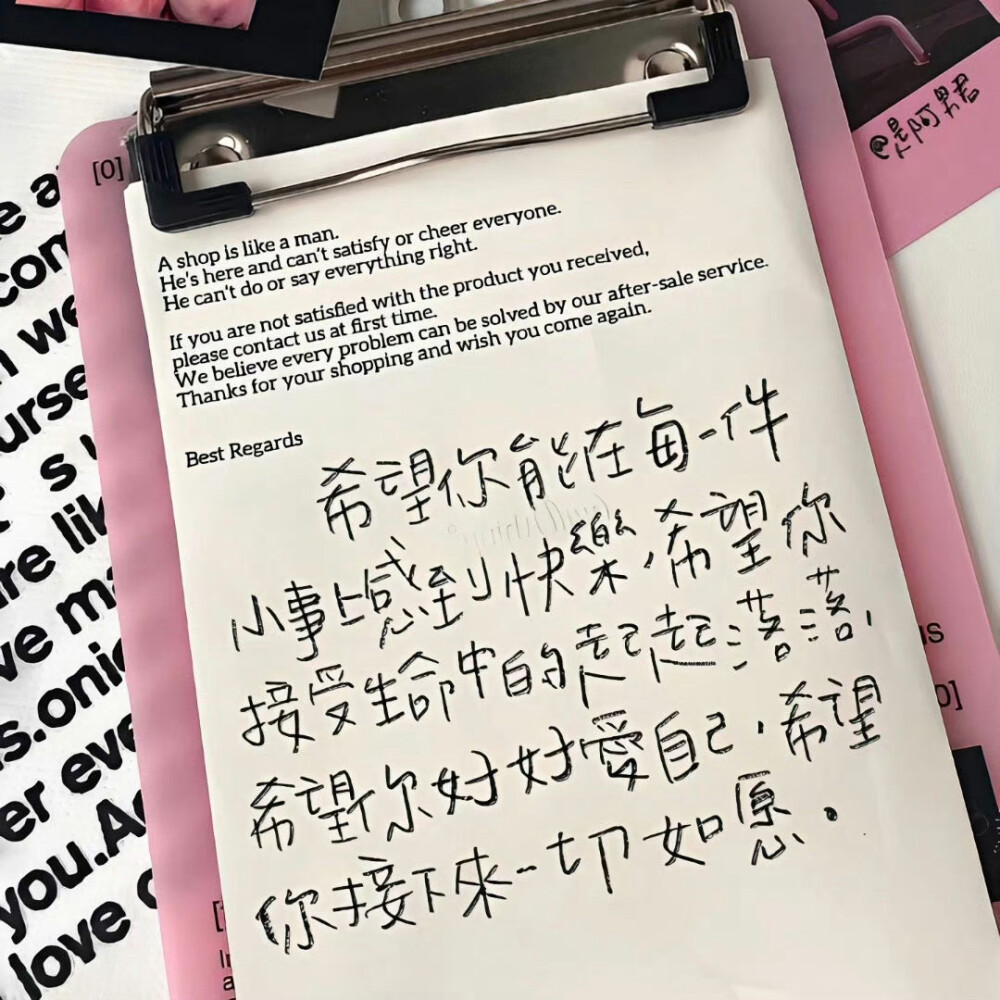 @是阿男君
[0]
A shop is like a man.
He's here and can't satisfy or cheer everyone.
He can't do or say everything right.
If you are not satisfied with the product you received,
please contact us at first time.
We believe every problem can be solved by our after-sale service.
Thanks for your shopping and wish you come again.
Best Regards
希望你能在每一件
小事上感到快樂,希望你
接受生命中的起起落落,
希望你好好愛自己,希望
你接下來一切如愿.
you.A
love